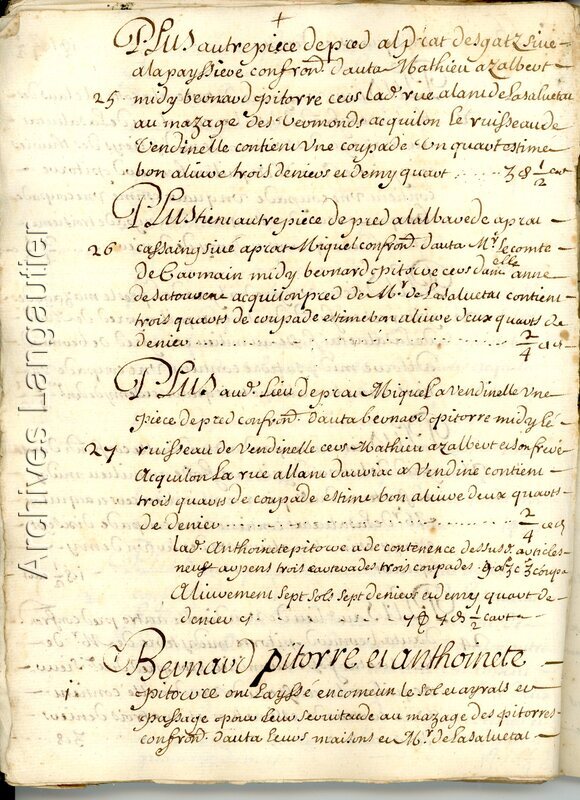 +
PLus autre piece de pred al prat des gatz sive
a la payssieve confron.t d'auta Mathieu azalbert
25 midy bernard pitorre cers lad.e rue alant de Lasaluetat
au mazage des vermonds acquilon le ruisseau de
Vendinelle contient Une coupade Un quart estime
bon aliure trois deniers et demy quart ..... 3 d 1/2 cart
PLus tient autre piece de pred al albarede a prat
26 cassaing sive a prat Miquel confron.t d'auta M.r Le comte
de Carmain midy bernard pitorre cers dam.elle anne
de acquilon pred de M.r de Lasaluetat contient
trois quarts de coupade estime bon aliure deux quarts de
denier ..... 2/4
PLus aud. Lieu de prat Miquel a Vendinelle Une
piece de pred confron.t d'auta bernard pitorre midy le
27 ruisseau de Vendinelle cers Mathieu azalbert et son frere
Acquilon La rue allant d'auriac a Vendine contient
trois quarts de coupade estime bon aliure deux quarts
de denier ..... 2/4
lad. Anthoinete pitorre a de contenence dessus.d articles
neuf arpens trois carterades trois coupades
Aliurement sept sols sept deniers et demy quart de
denier 1/2 cart
Bernard pitorre et anthoinete
pitorre ont Layssé en comeun le sol et ayrals et
passage pour Leur servitude au mazage des pitorres
confron.t d'auta Leurs maisons et M.r de Lasaluetat
Archives Langautier